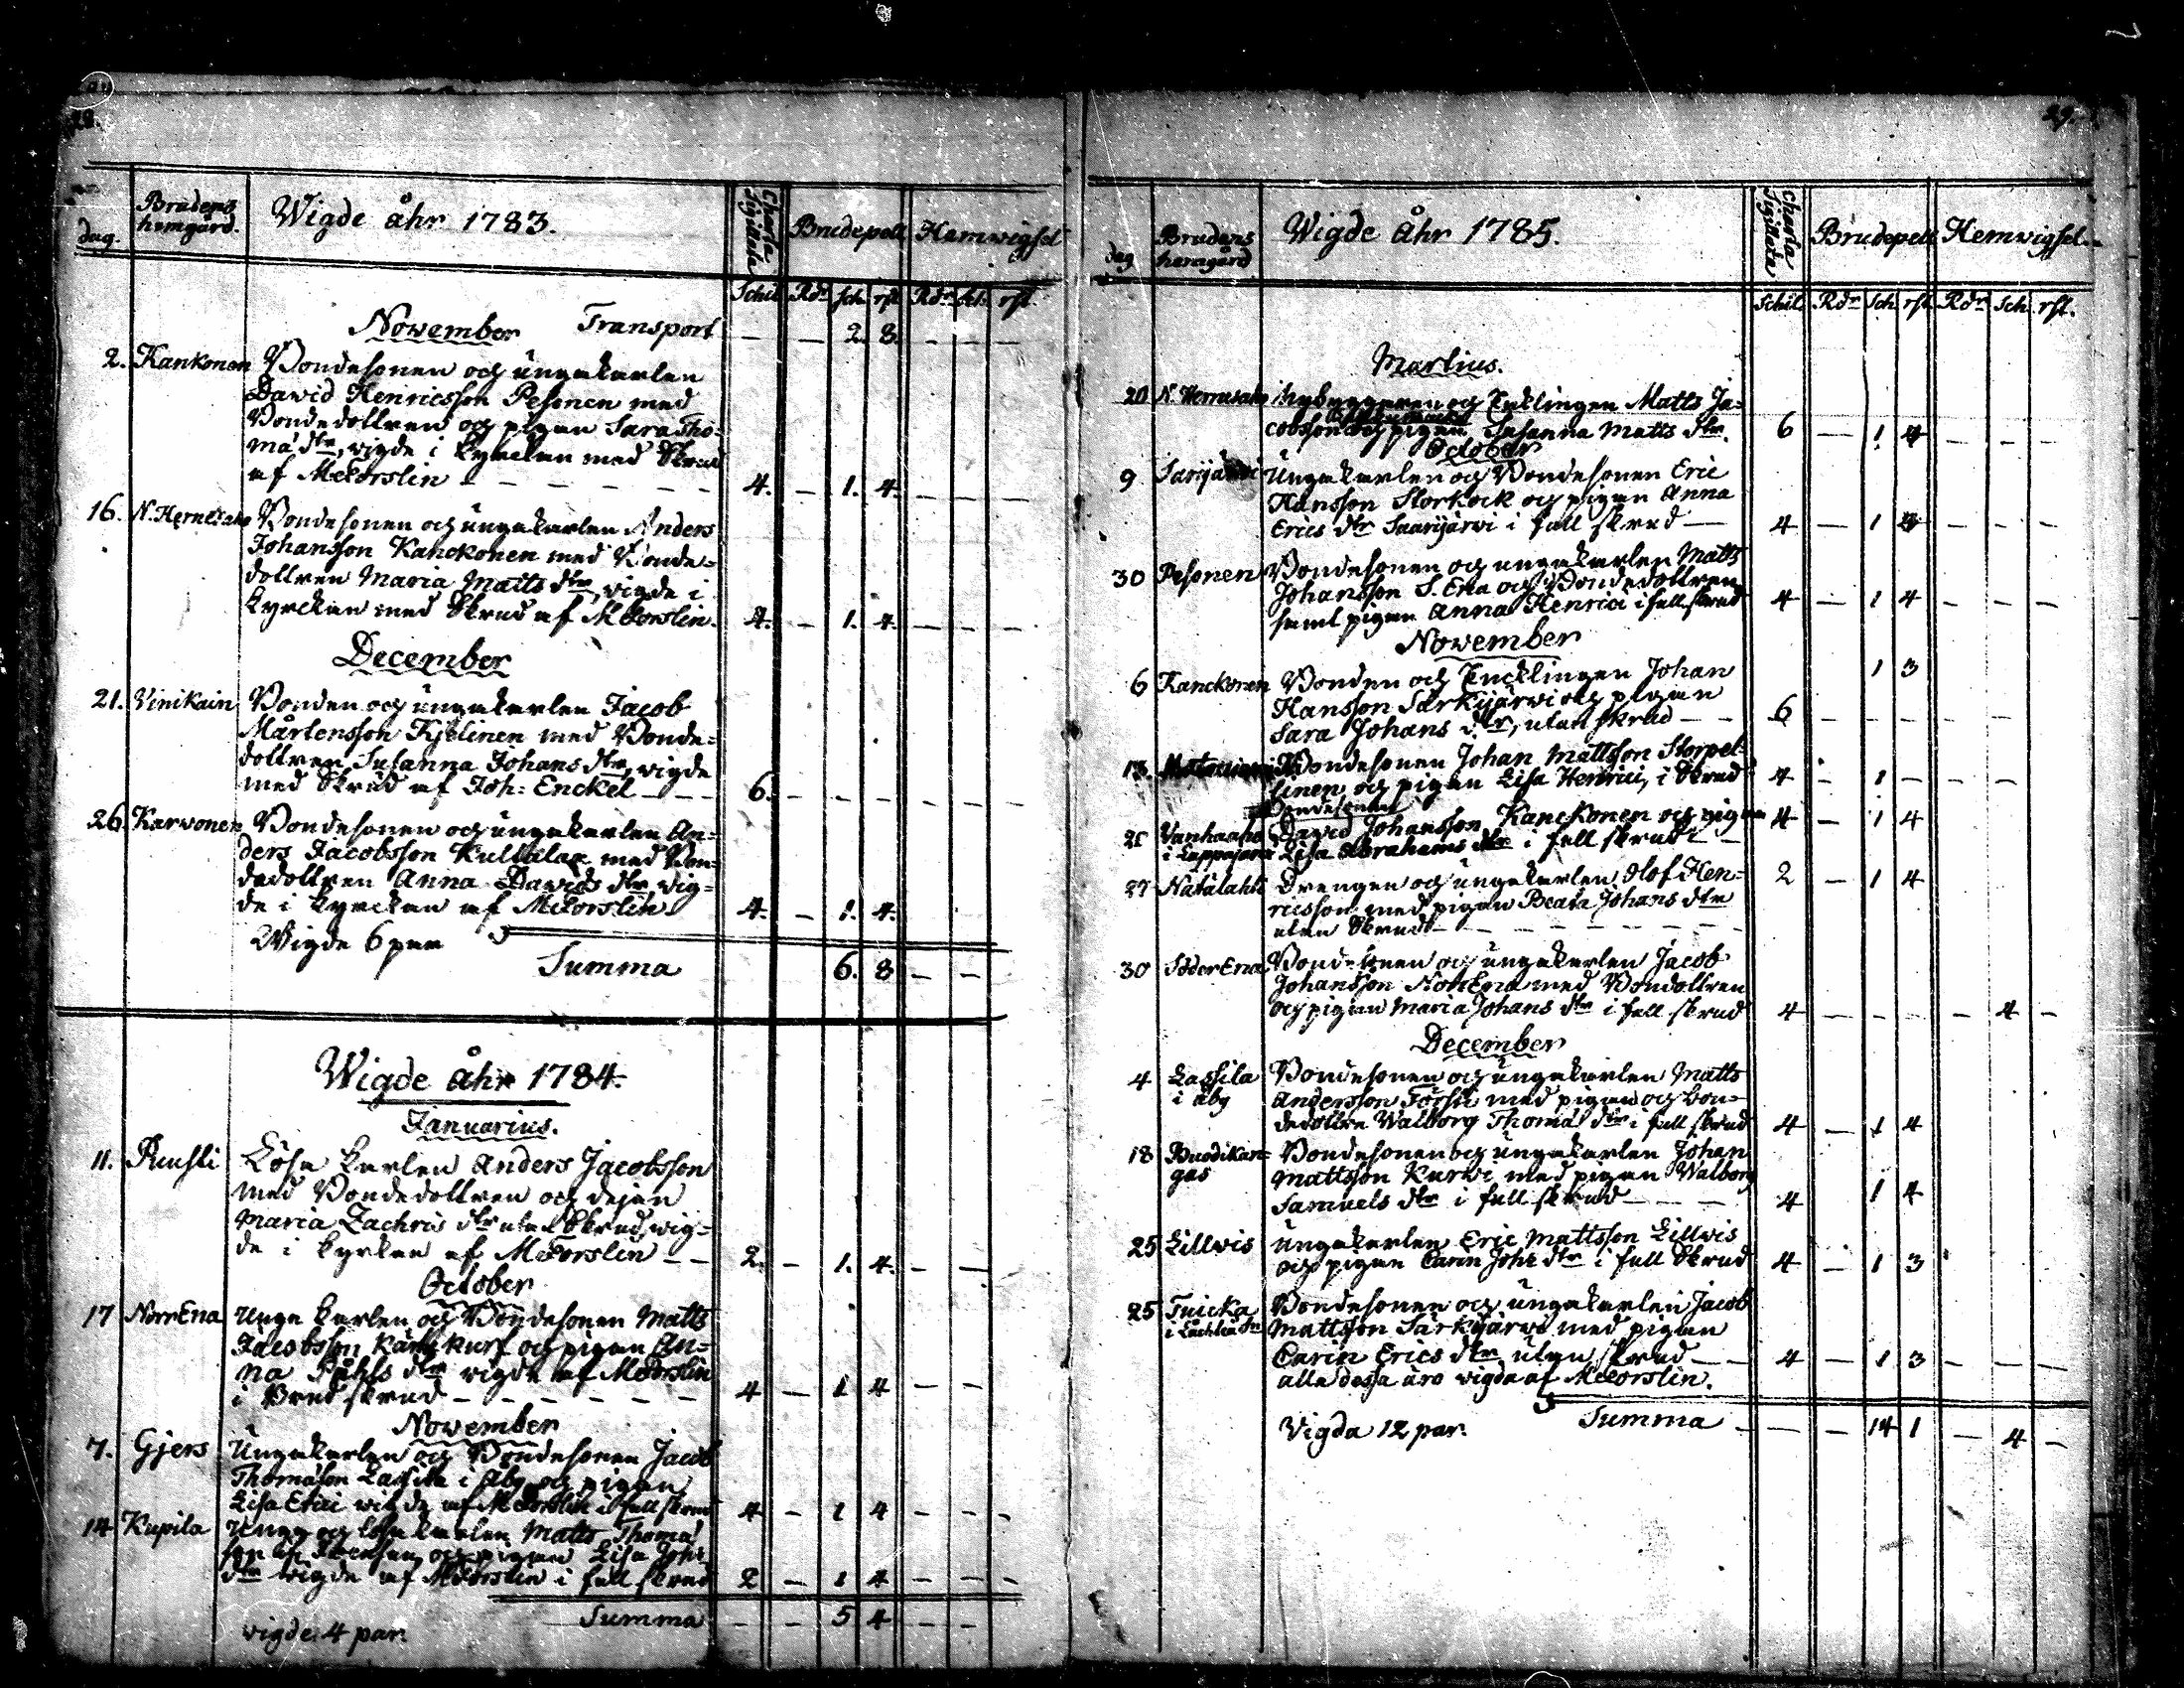 28.
dag.
Brudens hemgård.
Wigde åhr 1783.
Charta Sigillata
Brudepell
Hemwigsel
Schil. Rdr sch. rst. Rdr sch. rst.
November Transport — — 2. 8. — — —
2. Kankonen Bondesonen och ungekarlen
David Henricsson Pesonen med
Bondedottren och pigan Sara Tho-
mæ dtr, vigde i Kyrckan med Skrud
af McCorslin — 4. — 1. 4. — — —
16. N. Hernesaho Bondesonen och ungekarlen Anders
Johansson Kanckonen med Bonde-
dottren Maria Matts dtr, vigde i
Kyrckan med Skrud af McCorslin. 4. — 1. 4. — — —
December
21. Vinikain Bonden och ungekarlen Jacob
Mårtensson Kjelinen med Bonde-
dottren Susanna Johans dtr, vigde
med Skrud af Joh: Enckel — 6. — — — — — —
26. Karvonen Bondesonen och ungekarlen An-
ders Jacobsson Kultalax med Bon-
dedottren Anna Davids dtr vig-
de i Kyrckan af McCorslin 4. — 1. 4.
Wigde 6 par
Summa 6. 8 — —
Wigde åhr 1784.
Januarius.
11. Ruusti Lösa karlen Anders Jacobsson
med Bondedottren och dejan
Maria Zachris dtr utan Skrud, vig-
de i Kyrkan af McCorslin — 2. — 1. 4. — —
October
17 NorrEna Unge karlen och Bondesonen Matts
Jacobsson och pigan An-
na Påhls dtr vigde af McCorslin
i Brudskrud — 4 — 1 4 — —
November
7. Gjers Ungekarlen och Bondesonen Jacob
Thomason Lassila i Åby och pigan
Lisa Erici vigde af McCorslin i full skrud 4 — 1 4 — — —
14 Kupila Unge och lösa karlen Matts Thomæ
son och pigan Lisa Johs
dtr vigde af McCorslin i full skrud 2 — 1 4 — — —
Summa — — 5 4 — —
vigde 4 par.
29.
dag
Brudens hemgård
Wigde åhr 1785.
Charta Sigillata
Brudepell
Hemwigsel
Schil. Rdr Sch. rst. Rdr Sch. rst.
Martius.
20 N. Hernesaho Nybyggaren och Enklingen Matts Ja-
cobsson och pigan Susanna Matts dtr. 6 — 1 4 — — —
October
9 Sarijärvi Ungekarlen och Bondesonen Eric
Hansson Storkock och pigan Anna
Erics dtr Saarijärvi i full skrud — 4 — 1 4 — — —
30 Pesonen Bondesonen och ungekarlen Matts
Johansson S. Ena och Bondedottren
samt pigan Anna Henrici i full skrud 4 — 1 4 — — —
November
1 3
6 Kanckonen Bonden och Encklingen Johan
Hansson Särkijärvi och pigan
Sara Johans dtr, utan skrud — 6 — — — — —
13. Bondesonen Johan Mattsson Storpel-
linen och pigan Lisa Henrici, i Skrud 4 — 1 — — — —
Bondesonen
21 Vanhaaho David Johansson Kanckonen och pigan 4 — 1 4
i Lappajärvi Lisa Abrahams dtr i full skrud —
27 Natälahti Drengen och ungekarlen Olof Hen- 2 — 1 4
ricsson med pigan Beata Johans dtr
utan Skrud —
30 SöderEna Bondesonen och ungekarlen Jacob
Johansson NorrEna med Bondottren
och pigan Maria Johans dtr i full skrud 4 — — — — 4 —
December
4 Lassila Bondesonen och ungekarlen Matts
i Åby Andersson Försti med pigan och bon-
dedottre Walborg Thomæ dtr i full skrud 4 — 1 4
18 Buodikan- Bondesonen och ungekarlen Johan
gas Mattsson Kurki med pigan Walborg
Samuels dtr i full skrud — 4 1 4
25 Lillvis Ungekarlen Eric Mattsson Lillvis
och pigan Carin Johs dtr i full Skrud 4 — 1 3
25 Tuicka Bondesonen och ungekarlen Jacob
Mattsson Särkijärvi med pigan
Carin Erics dtr utan skrud — 4 — 1 3 — — —
alla dessa äro vigda af McCorslin.
Vigda 12 par. Summa — — — 14 1 — 4 —